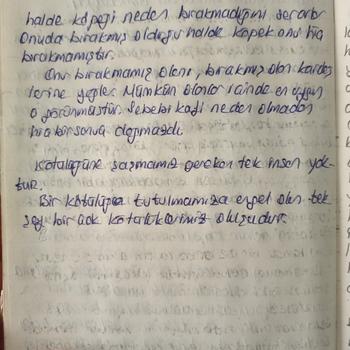 halde köpeği neden bırakmadığını sorar
Onuda bırakmış olduğu halde köpek onu hiç
bırakmamıştır.
Onu bırakmamış olanı, bırakmış olan kardeş
lerine yeğler. Mümkün olanlar içinde en uygun
o görünmüştür. Sebebi kadi neden olmadan
bırakırsan
Kötülüğüne şaşmamız gereken tek insan yok-
tur.
Bir kötülüğe tutulmamıza engel olan tek
şey bir çok kötülüklerimiz oluşudur.